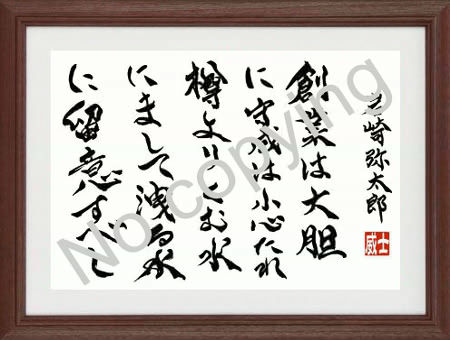 岩崎弥太郎
創業は大胆
に守成は小心たれ
樽よりくむ水
にまして洩る水
に留意すべし
士威
No copying